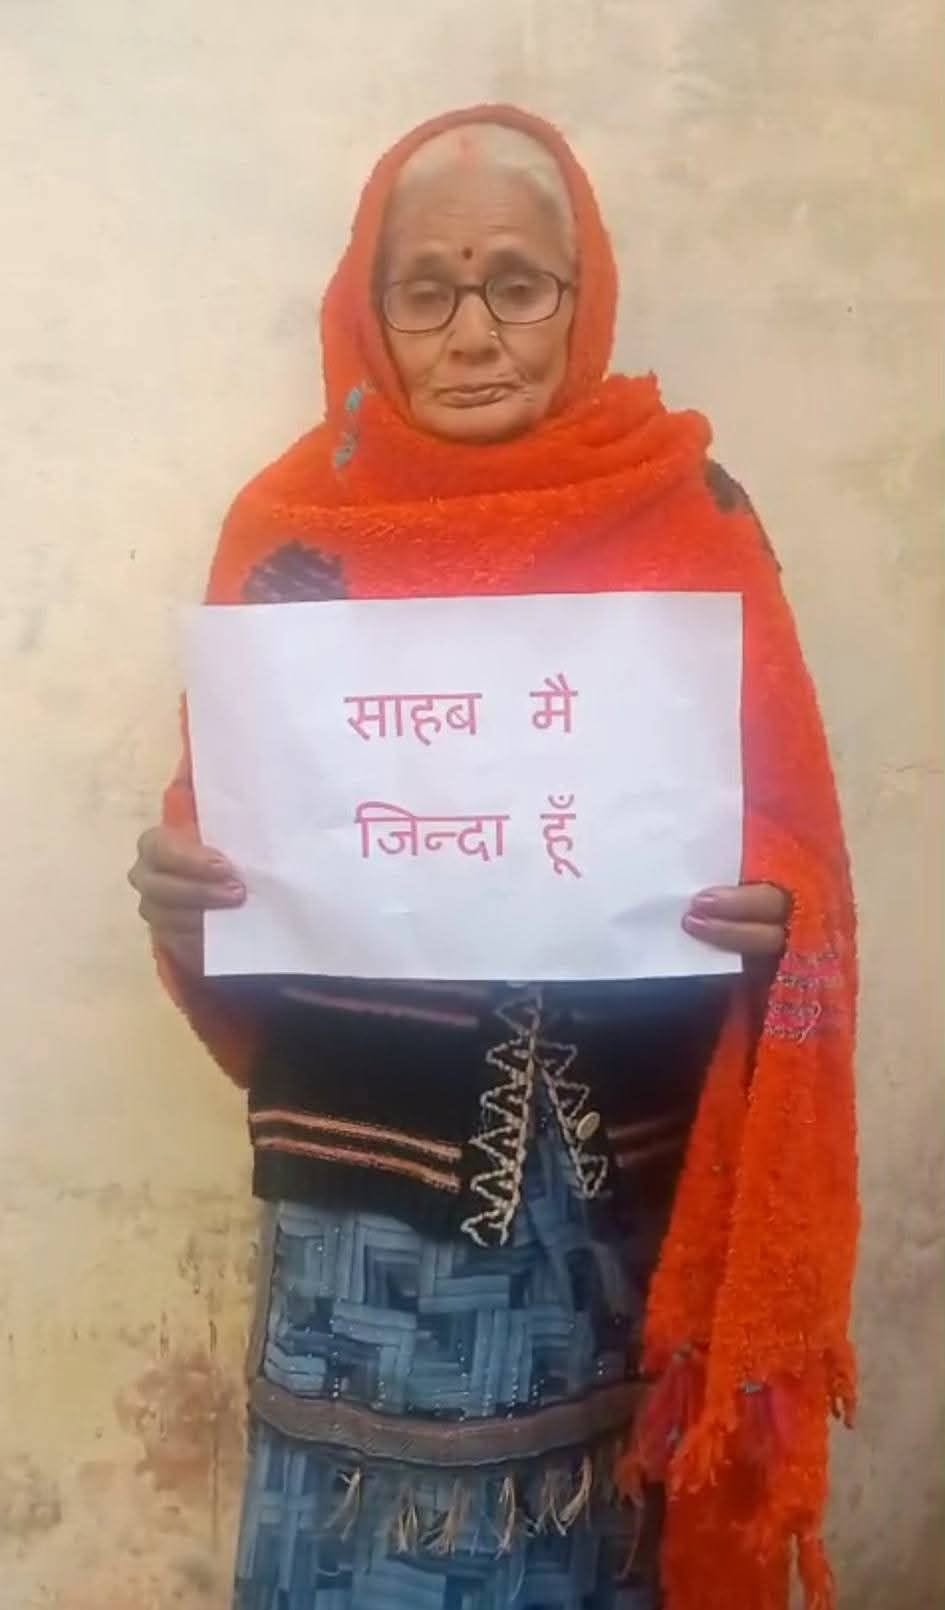 साहब मै
जिन्दा हूँ